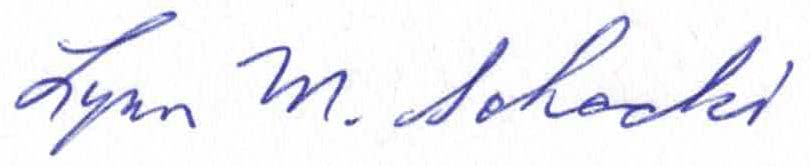 Lynn M. Sohocki